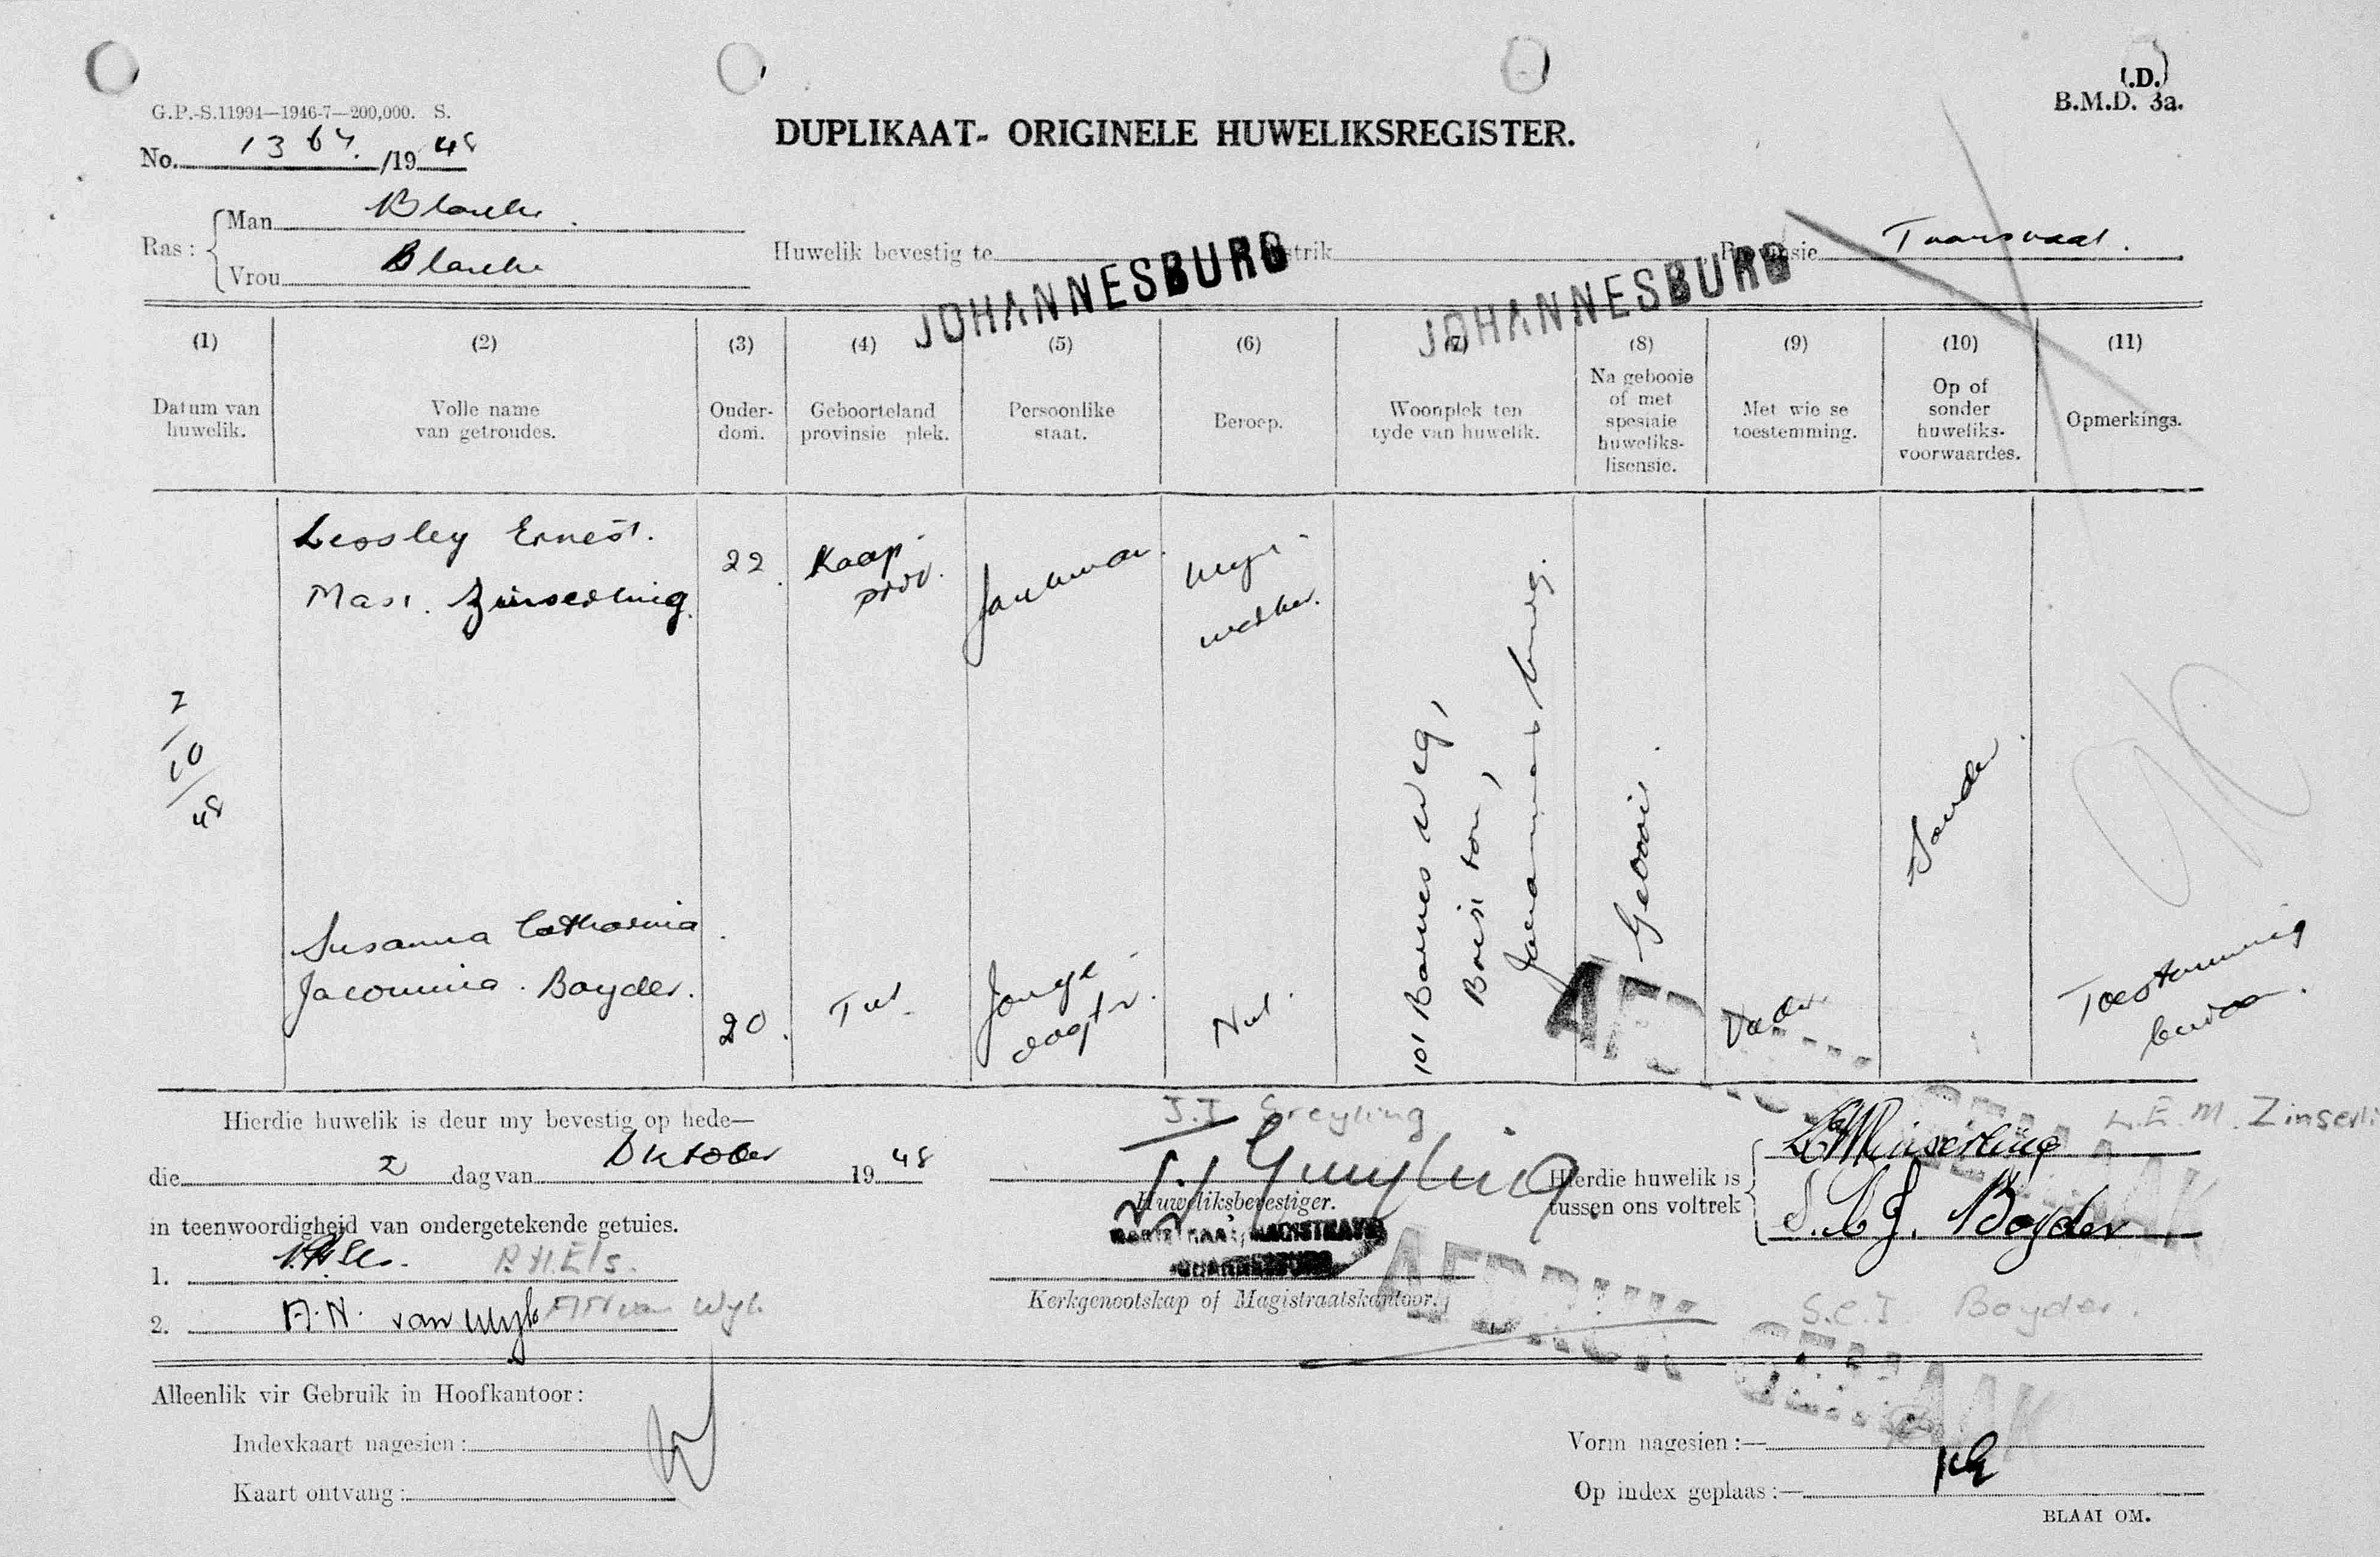 (.D.)
B.M.D. 3a.
G.P.-S.11994—1946-7—200,000. S.
DUPLIKAAT- ORIGINELE HUWELIKSREGISTER.
No. 1364. /19 48
Ras: Man Blanke.
Vrou Blanke
Huwelik bevestig te JOHANNESBURG JOHANNESBURG Provinsie Transvaal.
(1) (2) (3) (4) (5) (6) (7) (8) (9) (10) (11)
Datum van huwelik.
Volle name van getroudes.
Ouder- dom.
Geboorteland provinsie plek.
Persoonlike staat.
Beroep.
Woonplek ten tyde van huwelik.
Na gebooie of met spesiale huweliks- lisensie.
Met wie se toestemming.
Op of sonder huweliks- voorwaardes.
Opmerkings.
2/10/48
Lessley Ernest.
Max. Zinserling.
22.
Kaap prov.
Jonkman.
Myn- werker.
Susanna Catharina
Jacomina. Boyder.
20.
Tvl.
Jonge dogter.
Nul.
101 Barnes weg,
Brixton,
Johannesburg.
Gebooie.
Vader
Sonder
Toestemming
bewaar.
Hierdie huwelik is deur my bevestig op hede—
die 2 dag van Oktober 19 48
in teenwoordigheid van ondergetekende getuies.
1. B.H. Els.
2. A.N. van Wyk A N van Wyk
J.J Greyling
J.J. Greyling
Huweliksbevestiger.
MAGISTRAAT, MAGISTRATE
JOHANNESBURG
Kerkgenootskap of Magistraatskantoor.
Hierdie huwelik is tussen ons voltrek
L.E.M. Zinserli
LEMZinserling
S.C.J. Boyder
S.C.J Boyder.
Alleenlik vir Gebruik in Hoofkantoor:
Indexkaart nagesien:
Kaart ontvang:
Vorm nagesien:—
Op index geplaas:—
BLAAI OM.